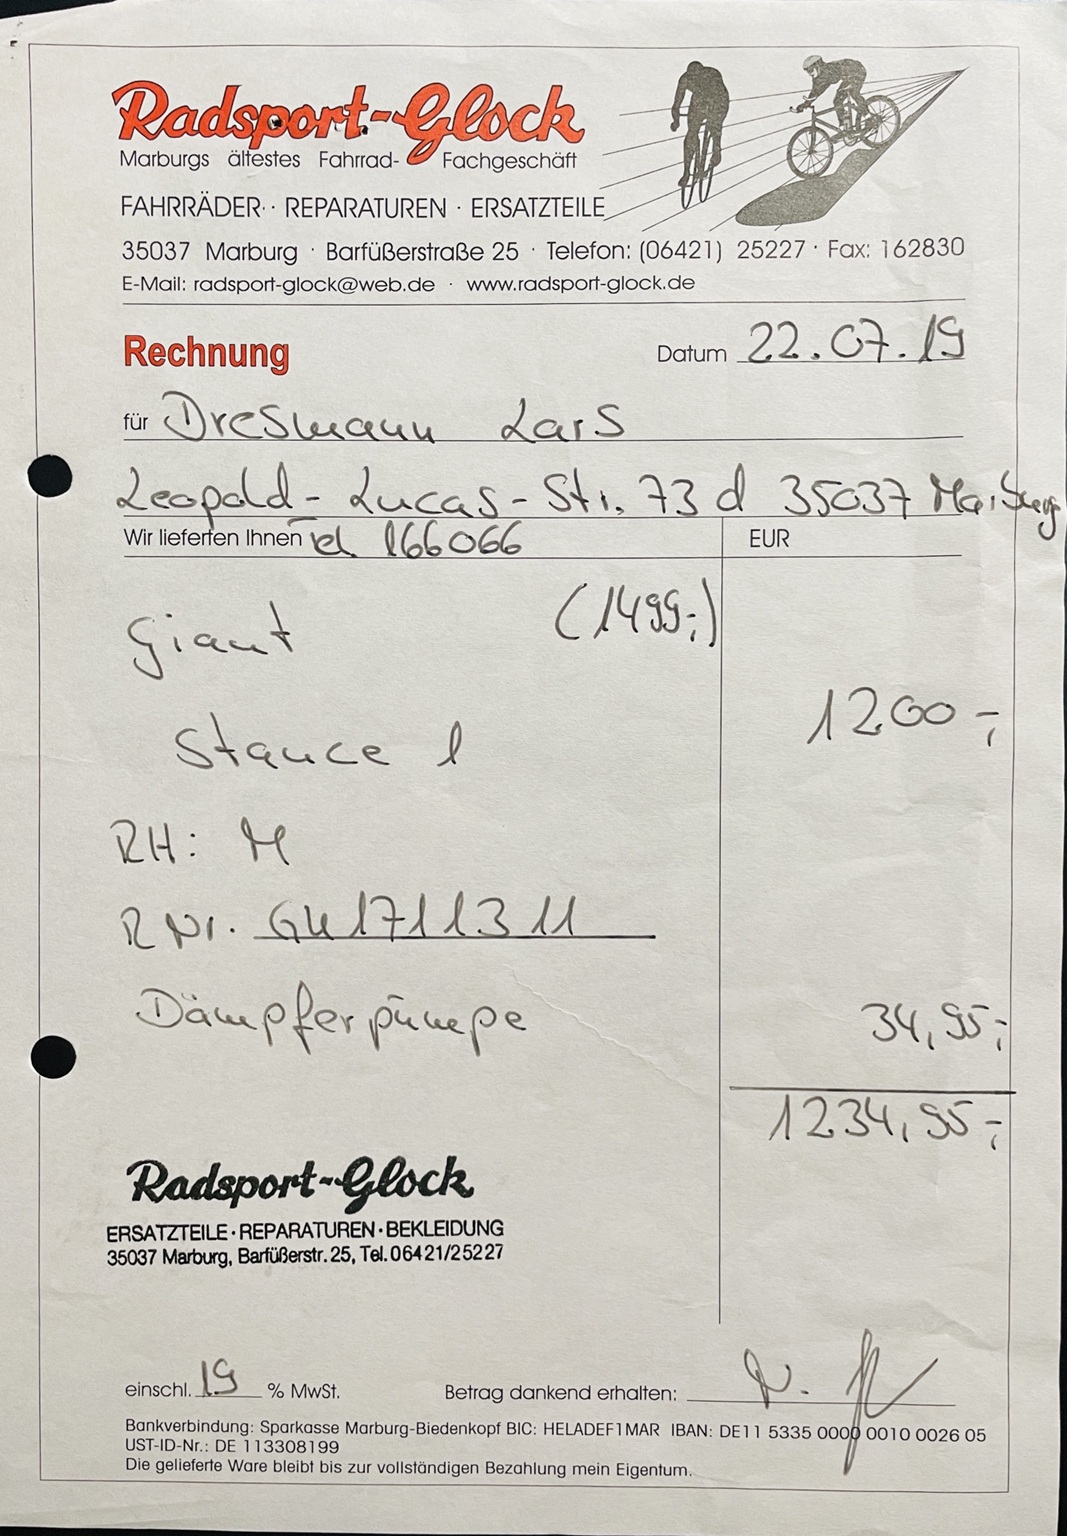 Radsport-Glock
Marburgs ältestes Fahrrad- Fachgeschäft
FAHRRÄDER · REPARATUREN · ERSATZTEILE
35037 Marburg · Barfüßerstraße 25 · Telefon: (06421) 25227 · Fax: 162830
E-Mail: radsport-glock@web.de · www.radsport-glock.de
Rechnung Datum 22.07.19
für Dresmann Lars
Leopold-Lucas-Str. 73 d 35037 Marburg
Wir lieferten Ihnen Tel 166066 EUR
Giant (1499,-)
Stance 1 1200,-
RH: M
R Nr. GU1711311
Dämpferpumpe 34,95,-
1234,95,-
Radsport-Glock
ERSATZTEILE · REPARATUREN · BEKLEIDUNG
35037 Marburg, Barfüßerstr. 25, Tel. 06421/25227
einschl. 19 % MwSt. Betrag dankend erhalten:
Bankverbindung: Sparkasse Marburg-Biedenkopf BIC: HELADEF1MAR IBAN: DE11 5335 0000 0010 0026 05
UST-ID-Nr.: DE 113308199
Die gelieferte Ware bleibt bis zur vollständigen Bezahlung mein Eigentum.